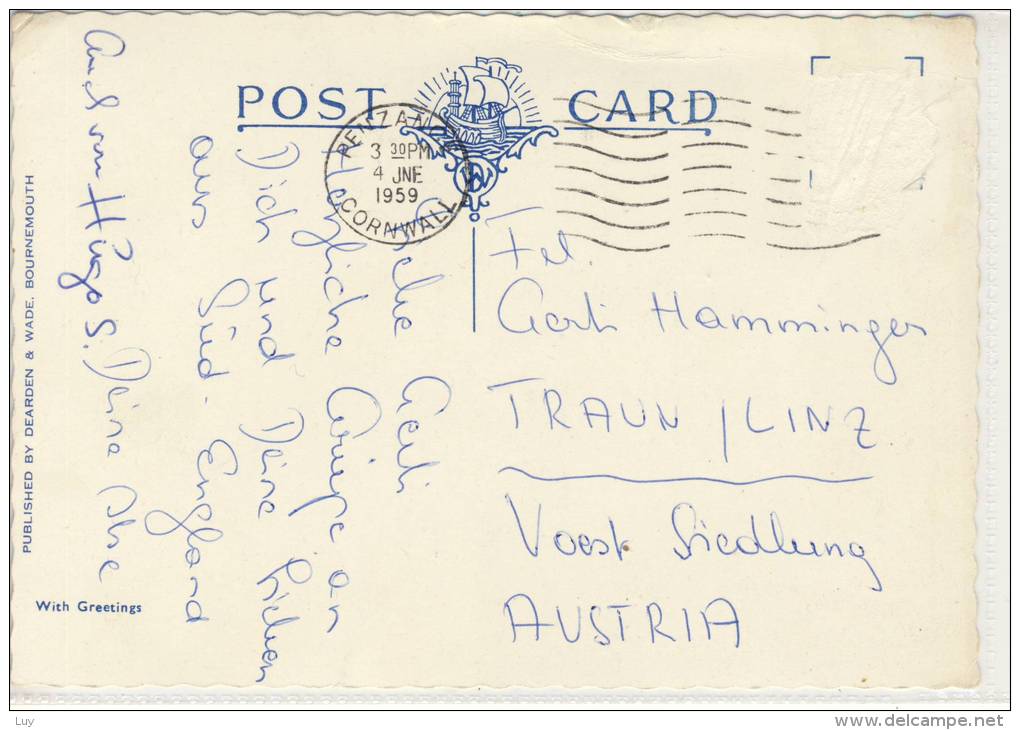 POST CARD
PENZANCE
3 30PM
4 JNE
1959
CORNWALL
DW
Liebe Gerti
Herzliche Grüße an
Dich und Deine Lieben
aus Süd-England
Deine
And von Hugo S.
Frl.
Gerti Hamminger
TRAUN / LINZ
Voest Siedlung
AUSTRIA
PUBLISHED BY DEARDEN & WADE, BOURNEMOUTH
With Greetings
Luy
www.delcampe.net